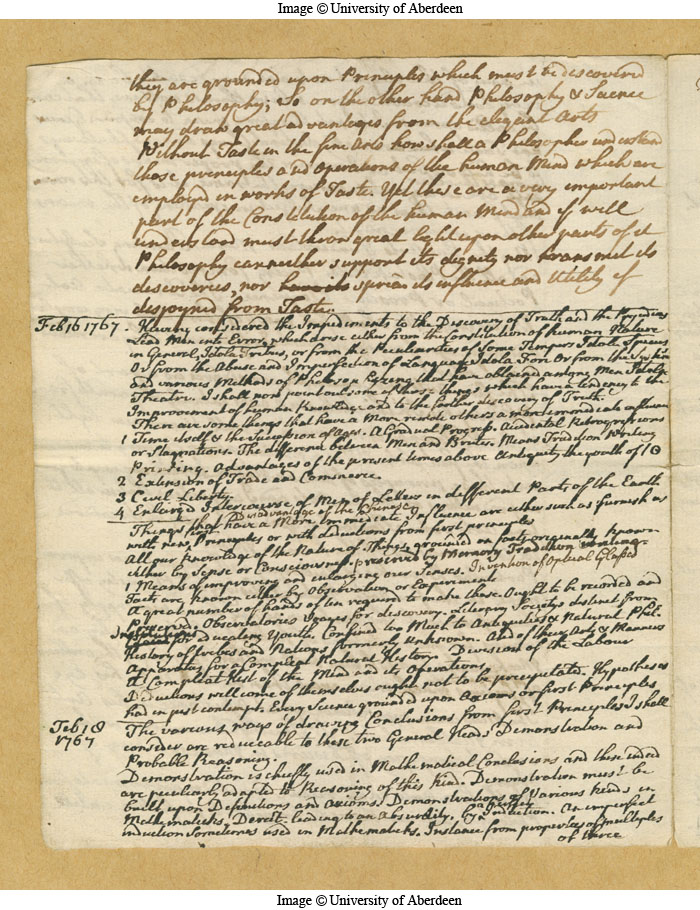 Image © University of Aberdeen
they are grounded upon Principles which must be discovered
by Philosophy; So on the other hand Philosophy & Science
may draw great advantages from the elegant Arts
Without Taste in the fine Arts how shall a Philosopher understand
those principles and operations of the human Mind which are
employed in works of Taste. Yet these are a very important
part of the Constitution of the human Mind and if well
understood must throw great light upon other parts of it
Philosophy can neither support its dignity nor transmit its
discoveries, nor spread its influence and Utility if
disjoyned from Taste.
Feb 16 1767. Having considered the Impediments to the Discovery of Truth and the Prejudices
Lead Men into Error, which arise either from the Constitution of human Nature
in General, Idola Tribus, or from the Peculiarities of Some Tempers Idola Specus
Or from the Abuse and Imperfection of Language Idola Fori Or from the Systems
and various Methods of Philosophizing that have obtained among Men Idola
Theatri. I shall now point out some of those things which have a tendency to the
Improvement of human Knowledge and to the farther discovery of Truth.
There are some things that have a More remote others a more immediate influence
1 Time itself & the Succession of Ages. A Gradual Progress. Accidental Retrogressions
or Stagnations. The difference between Men and Brutes. Means Tradition Writing
Printing. Advantages of the present times above Antiquity the youth of
2 Extension of Trade and Commerce.
3 Civil Liberty
4 Enlarged Intercourse of Men of Letters in different Parts of the Earth
Disadvantage of the Chinese
Things that have a More Immediate Influence are either such as furnish us
with new Principles or with deductions from first principles
All our knowledge of the Nature of Things grounded on facts originally known
either by Sense or Consciousness. preserved by Memory Tradition writing
1 Means of improving and enlarging our Senses. Invention of Optical Glasses
Facts are known either by Observation or Experiment
A great number of hands often required to make these. Ought to be recorded and
Preserved. Observatories Voyages for discovery. Literary Societys distinct from
Institutions for educating Youth. Confined too Much to Antiquities & Natural Phil
History of tribes and Nations formerly Unknown. And of their Arts & Manners
Apparatus for a Compleat Natural History. Division of the Labour
A Compleat Hist of the Mind and its Operations
Deductions will come of themselves ought not to be precipitated. Hypotheses
had in just contempt. Every Science grounded upon Axioms or first Principles
Feb 18
1767
The various ways of drawing Conclusions from first Principles I shall
consider are reduceable to these two General Heads Demonstration and
Probable Reasoning.
Demonstration is chiefly used in Mathematical Conclusions and these indeed
are peculiarly adapted to Reasoning of this kind. Demonstration must be
built upon Definitions and axioms. Demonstrations of Various kinds in
Mathematicks. Direct. leading to an Absurdity. by a perfect Induction. An imperfect
induction Sometimes used in Mathematicks. Instance from properties of multiples
of three
Image © University of Aberdeen